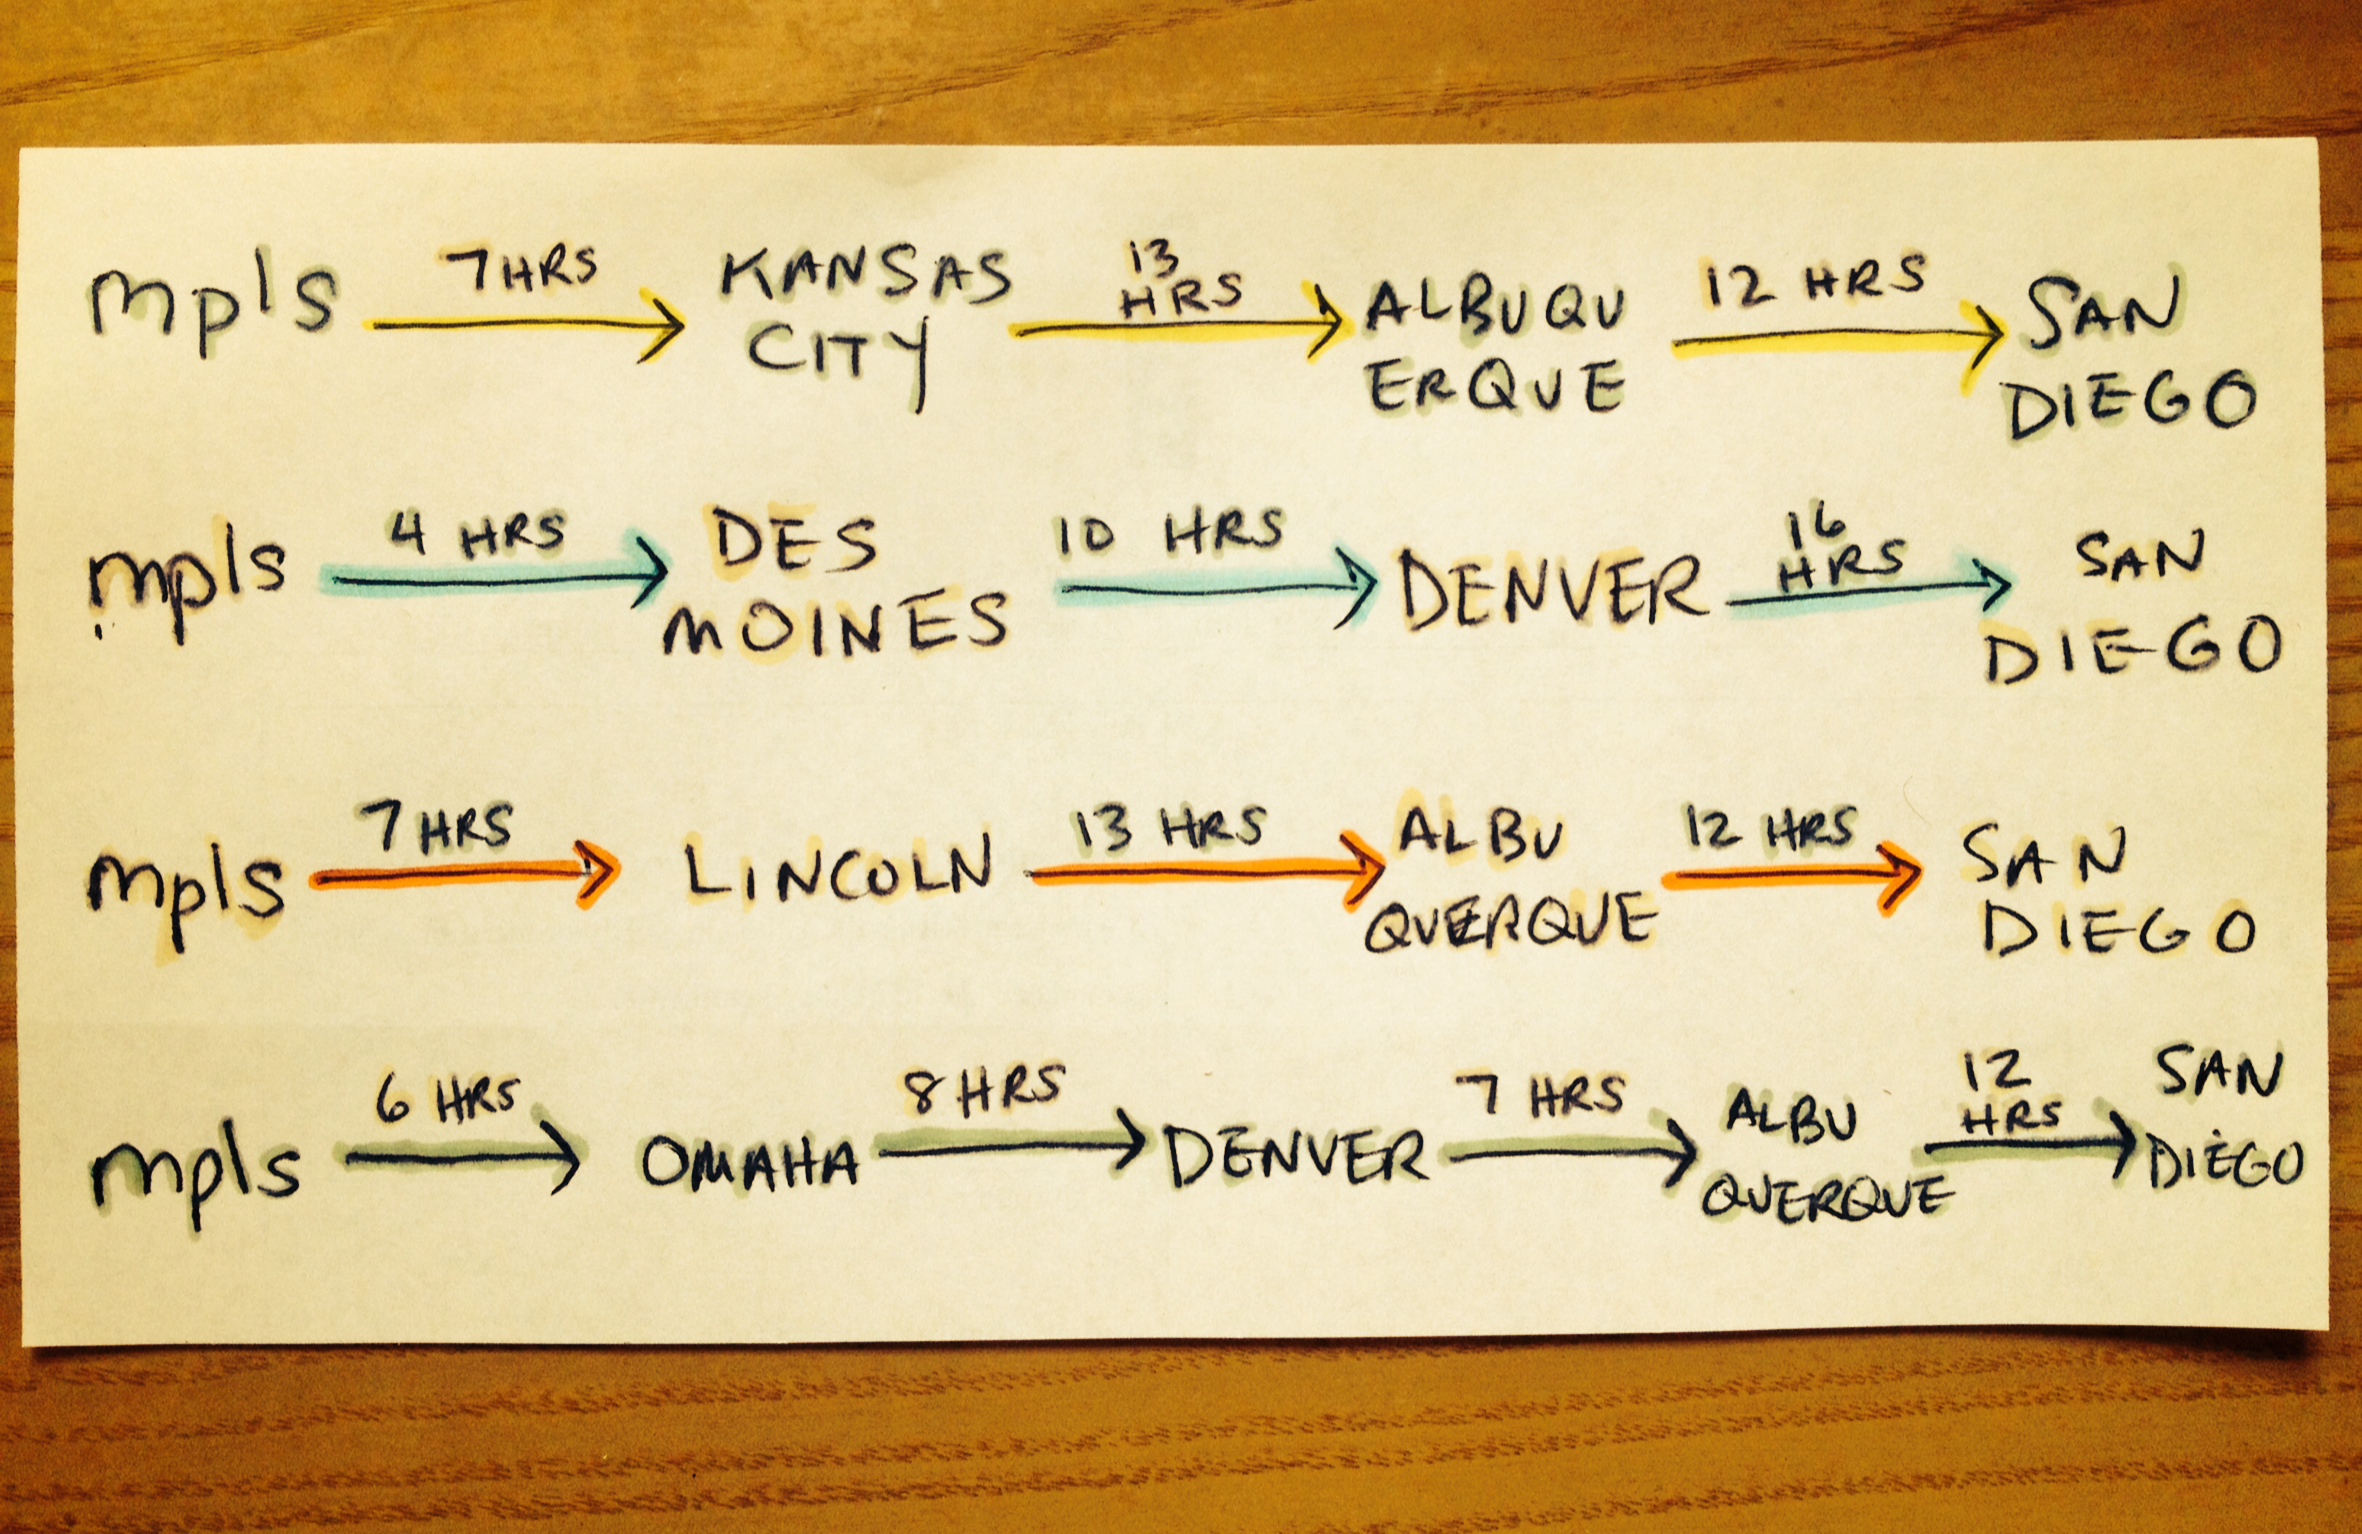 mpls 7 HRS KANSAS CITY 13 HRS ALBUQU ERQUE 12 HRS SAN DIEGO
mpls 4 HRS DES MOINES 10 HRS DENVER 16 HRS SAN DIEGO
mpls 7 HRS LINCOLN 13 HRS ALBU QUERQUE 12 HRS SAN DIEGO
mpls 6 HRS OMAHA 8 HRS DENVER 7 HRS ALBU QUERQUE 12 HRS SAN DIEGO